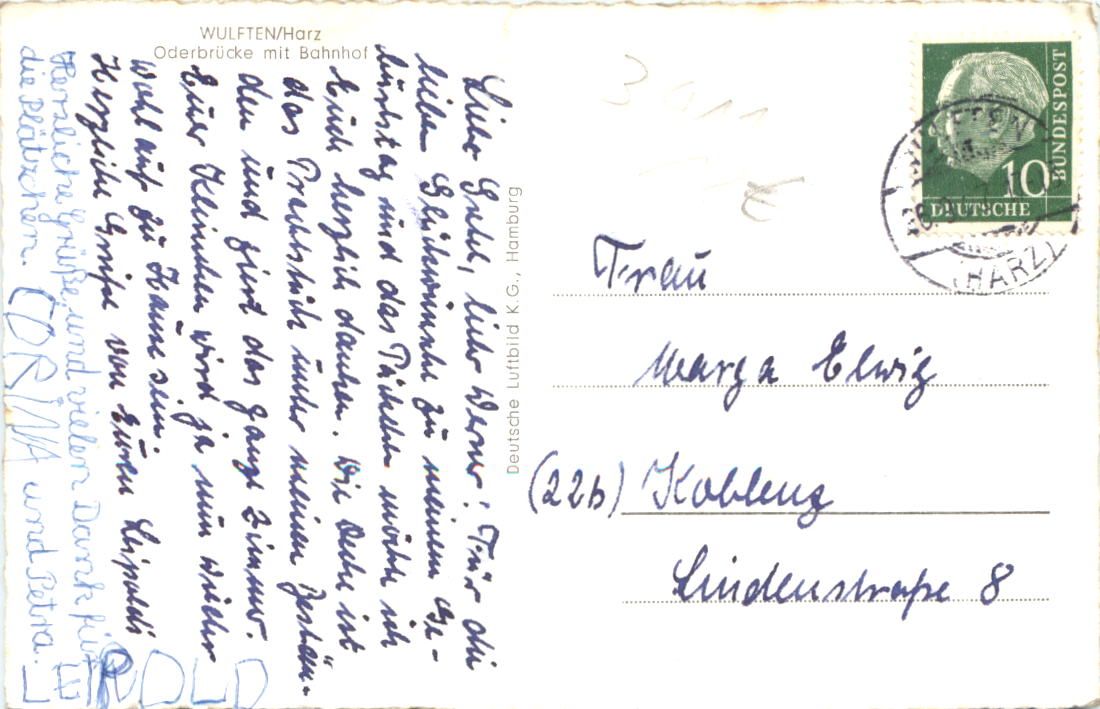 WULFTEN/Harz
Oderbrücke mit Bahnhof
Liebe Gretel, lieber Werner! Für die
lieben Glückwünsche zu meinem Ge-
burtstag und das Päckchen möchte ich
Euch herzlich danken. Die Decke ist
das Prachtstück unter meinen Beständ-
den und ziert das ganze Zimmer.
Euer Kleinchen wird ja nun wieder
wohlauf zu Hause sein.
Herzliche Grüße von Euren Leipolds
Herzliche Grüße und vielen Dank für
die Plätzchen. CORINA und Petra.
LEROLD
Deutsche Luftbild K.G., Hamburg
DEUTSCHE
BUNDESPOST
10
WULFTEN
(HARZ)
Frau
Marga Elwig
(22b) Koblenz
Lindenstraße 8